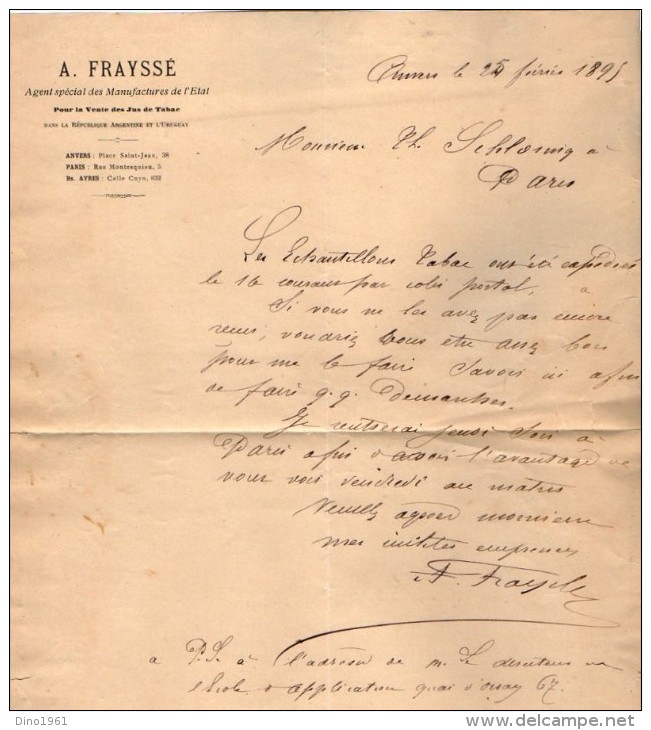 A. FRAYSSÉ
Agent spécial des Manufactures de l'Etat
Pour la Vente des Jus de Tabac
DANS LA RÉPUBLIQUE ARGENTINE ET L'URUGUAY
ANVERS : Place Saint-Jean, 38
PARIS : Rue Montesquieu, 5
Bs. AYRES : Calle Cuyo, 632
Anvers le 24 février 1895
Monsieur Th. Schlœsing à
Paris
Les Echantillons Tabac ont été expédiés
le 16 courant par colis postal, a
Si vous ne les avez pas encore
reçus, voudriez vous être assez bon
pour me le faire savoir ici afin
de faire q.q. Démarches.
Je rentrerai jeudi soir à
Paris afin d avoir l'avantage de
vous voir vendredi au matin
Veuillez agréer monsieur
mes civilités empressées
A. Frayssé
a P.S. à l'adresse de m. Le directeur
école d application quai d'orsay 67.
Dino1961
www.delcampe.net